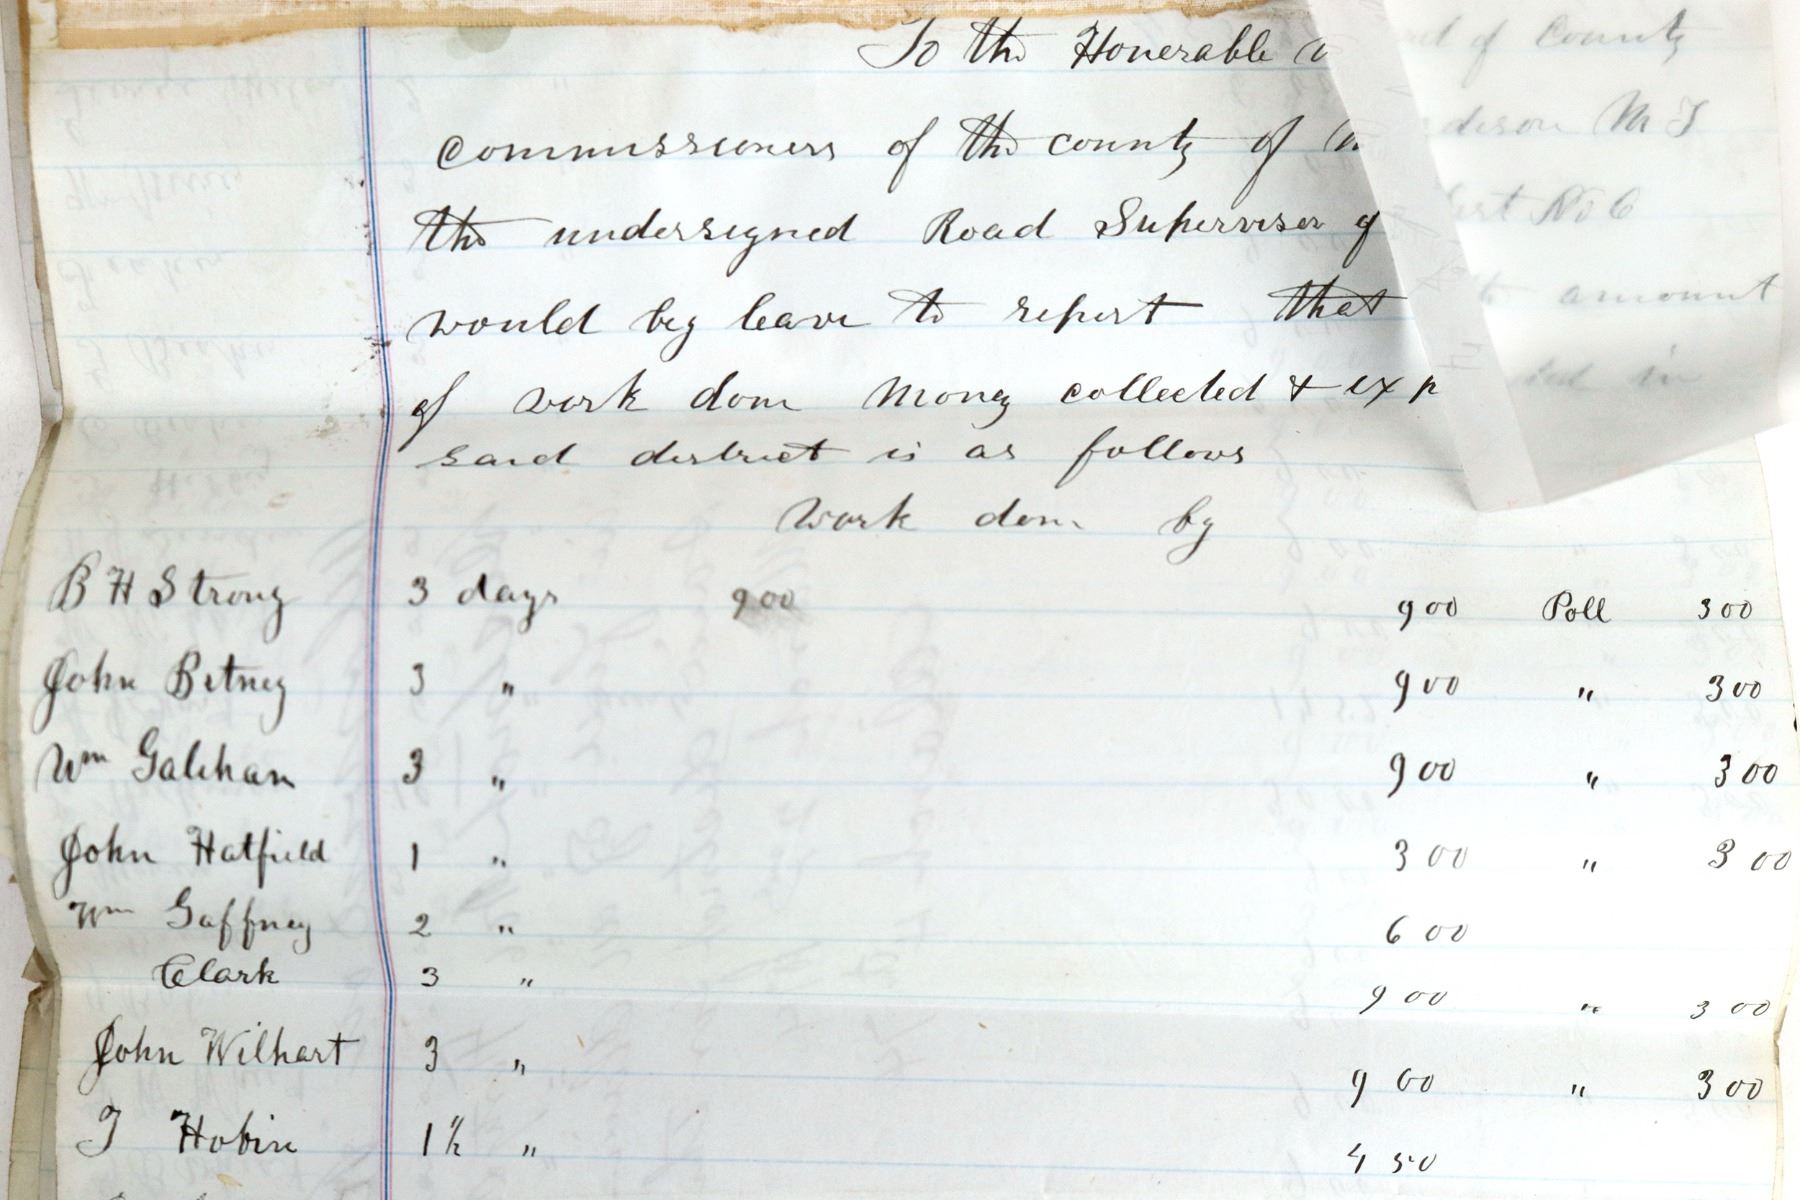 To the Honerable of County
commissioners of the county of M dison M T
the undersigned Road Superviser of No 6
would beg leave to report that amount
of work done Money collected & exp in
said district is as follows
Work done by
B H Strong 3 days 900 900 Poll 300
John Betney 3 " 900 " 300
Wm Galehan 3 " 900 " 300
John Hatfield 1 " 300 " 300
Wm Gaffney 2 " 600
Clark 3 " 900 " 300
John Wilhart 3 " 900 " 300
T Hobin 1½ " 450